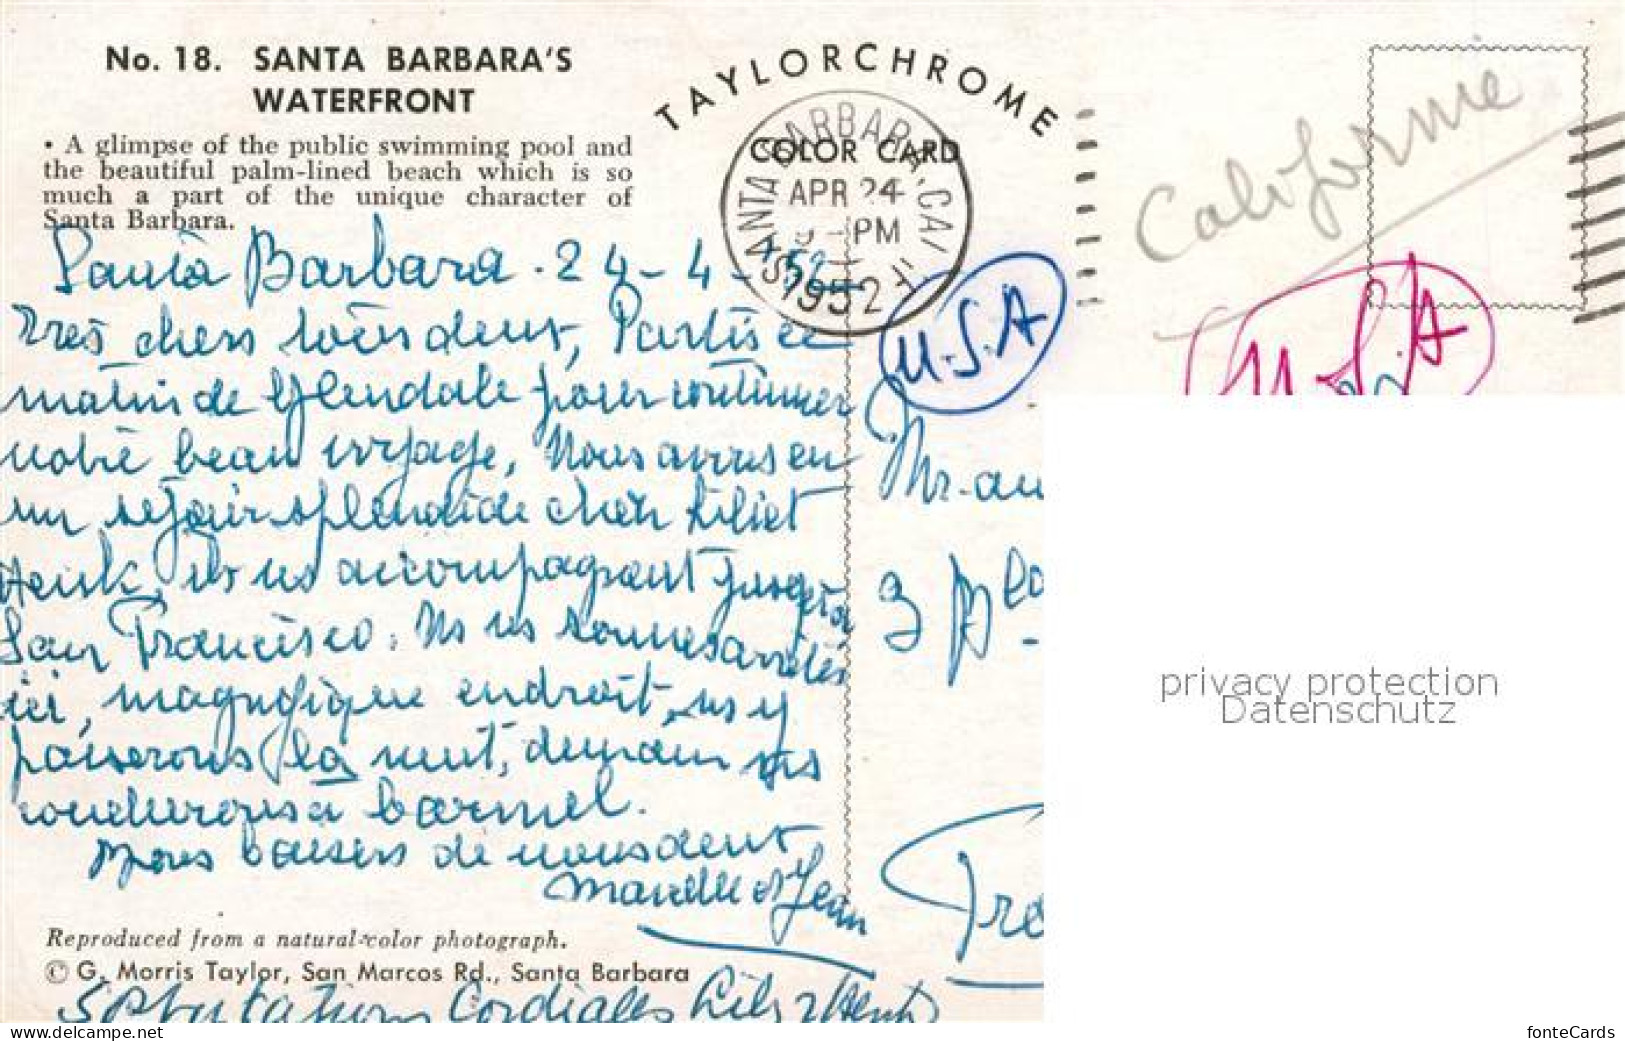 No. 18. SANTA BARBARA'S
WATERFRONT
• A glimpse of the public swimming pool and
the beautiful palm-lined beach which is so
much a part of the unique character of
Santa Barbara.
TAYLORCHROME
COLOR CARD
SANTA BARBARA, CALIF
APR 24
PM
1952
Californie
U.S.A
U.S.A
Santa Barbara . 24-4-52
Très chers tous deux, Partis ce
matin de Glendale pour continuer
notre beau voyage, Nous avons eu
un séjour splendide chez Lili et
Henk, ils ns accompagnent jusqu'à
San Francisco. Ns ns sommes arrêtés
ici, magnifique endroit, ns y
passerons la nuit, demain ns
coucherons à Carmel.
Bons baisers de nous deux,
Marcelle et Jean
Mr. au
9 Pl
Fra
Reproduced from a natural-color photograph.
© G. Morris Taylor, San Marcos Rd., Santa Barbara
Salutations Cordiales Lili & Henk
privacy protection
Datenschutz
www.delcampe.net
fonteCards